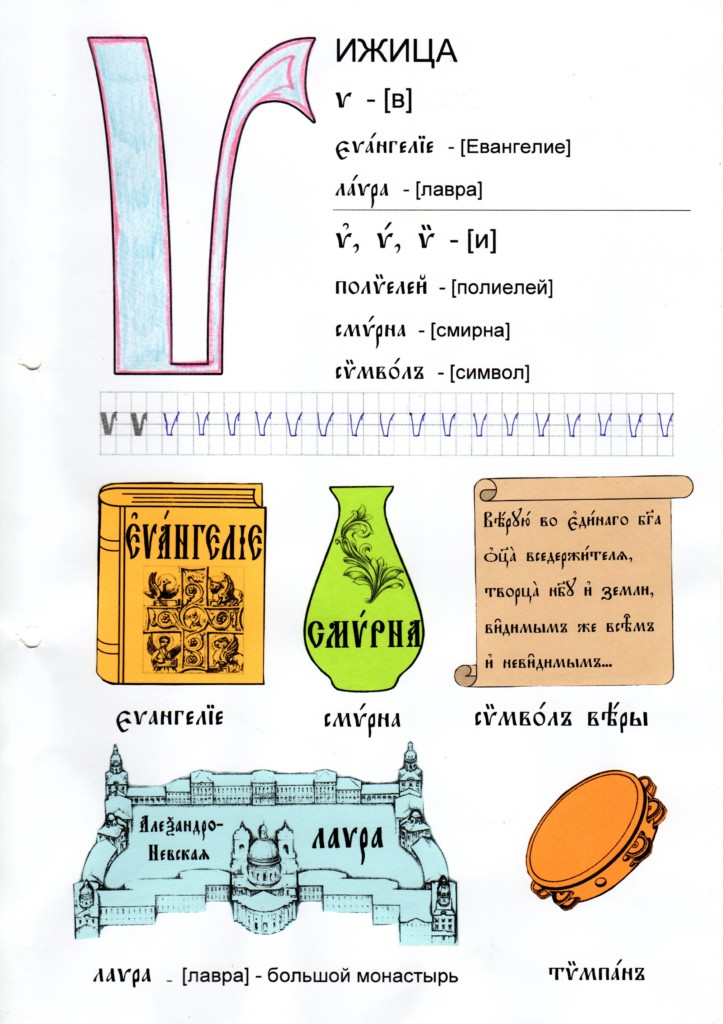 ИЖИЦА
ѵ - [в]
єѵа́нгелїе - [Евангелие]
ла́ѵра - [лавра]
ѵ҆, ѵ́, ѷ - [и]
полѷеле́й - [полиелей]
смѵ́рна - [смирна]
сѷмво́лъ - [символ]
Ѵ Ѵ Ѵ Ѵ Ѵ Ѵ Ѵ Ѵ Ѵ Ѵ Ѵ Ѵ Ѵ Ѵ Ѵ Ѵ Ѵ Ѵ Ѵ
Є҆ѴА́НГЕЛІЕ
СМѴ́РНА
Вѣ́рꙋю во є҆ди́наго бг҃а
ѻ҆ц҃а̀ вседержи́телѧ,
творца̀ нб҃ꙋ и҆ землѝ,
ви̑димымъ же всѣ̑мъ
и҆ неви̑димымъ...
єѵангелїе
смѵ́рна
сѷмво́лъ вѣ́ры
Алеѯандро-
Невская
ЛАѴРА
лаѵра - [лавра] - большой монастырь
тѷмпа́нъ